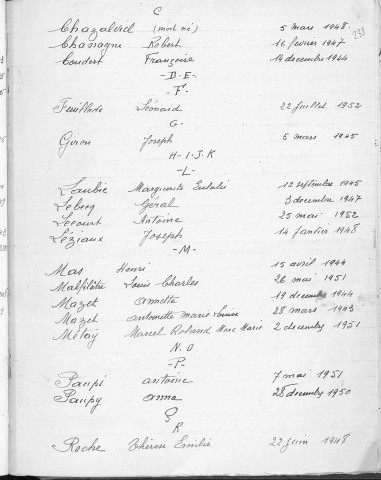 C
233
Chazalviel (mort né) 5 mars 1948
Chassagne Robert 16 février 1947
Coudert Françoise 14 décembre 1944
-D-E-
-F-
Feuillade Léonard 22 juillet 1952
G-
Giron Joseph 6 mars 1945
H-I-J.K
-L-
Laubie Marguerite Eulalie 12 septembre 1945
Lebocq Géral 3 décembre 1947
Lecourt Antoine 25 mai 1952
Léziaux Joseph 14 janvier 1948
-M-
Mas Henri 15 avril 1944
Malfilâtre Louis Charles 26 mai 1951
Mazet Annette 19 décembre 1944
Mazet Antoinette Marie Louise 28 mars 1943
Métay Marcel Roland Marc Marie 2 décembre 1951
N.O
-P-
Paupi Antoine 7 mai 1951
Paupy Anna 28 décembre 1950
Q
R
Roche Thérèse Emilie 22 juin 1948